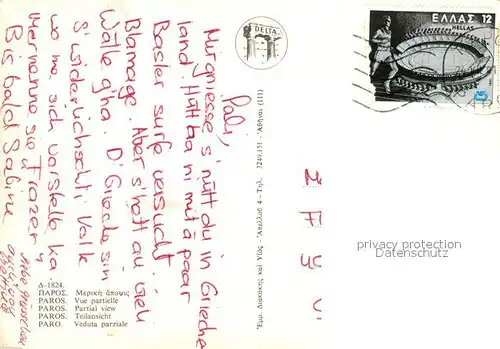 Pali,
Mir gniesse s nütt du in Grieche
land. Hütt ha ni mit à paar
Basler surfe versucht.
Blamage. Aber s'hätt au viel
Wälle gha. D'Grieche sin
s'widerlichschti Volk
wo me sich vorstelle ka.
Mer nänne sie Frazer
Bis bald Sabine
DELTA
ΕΛΛΑΣ 12
HELLAS
Δ-1824.
ΠΑΡΟΣ. Μερική άποψις
PAROS. Vue partielle
PAROS. Partial view
PAROS. Teilansicht
PARO. Veduta parziale
Εμμ. Διακάκης καί Υἱός - Ἀπελλοῦ 4 - Τηλ. 3249.151 - Ἀθῆναι (111)
privacy protection
Datenschutz